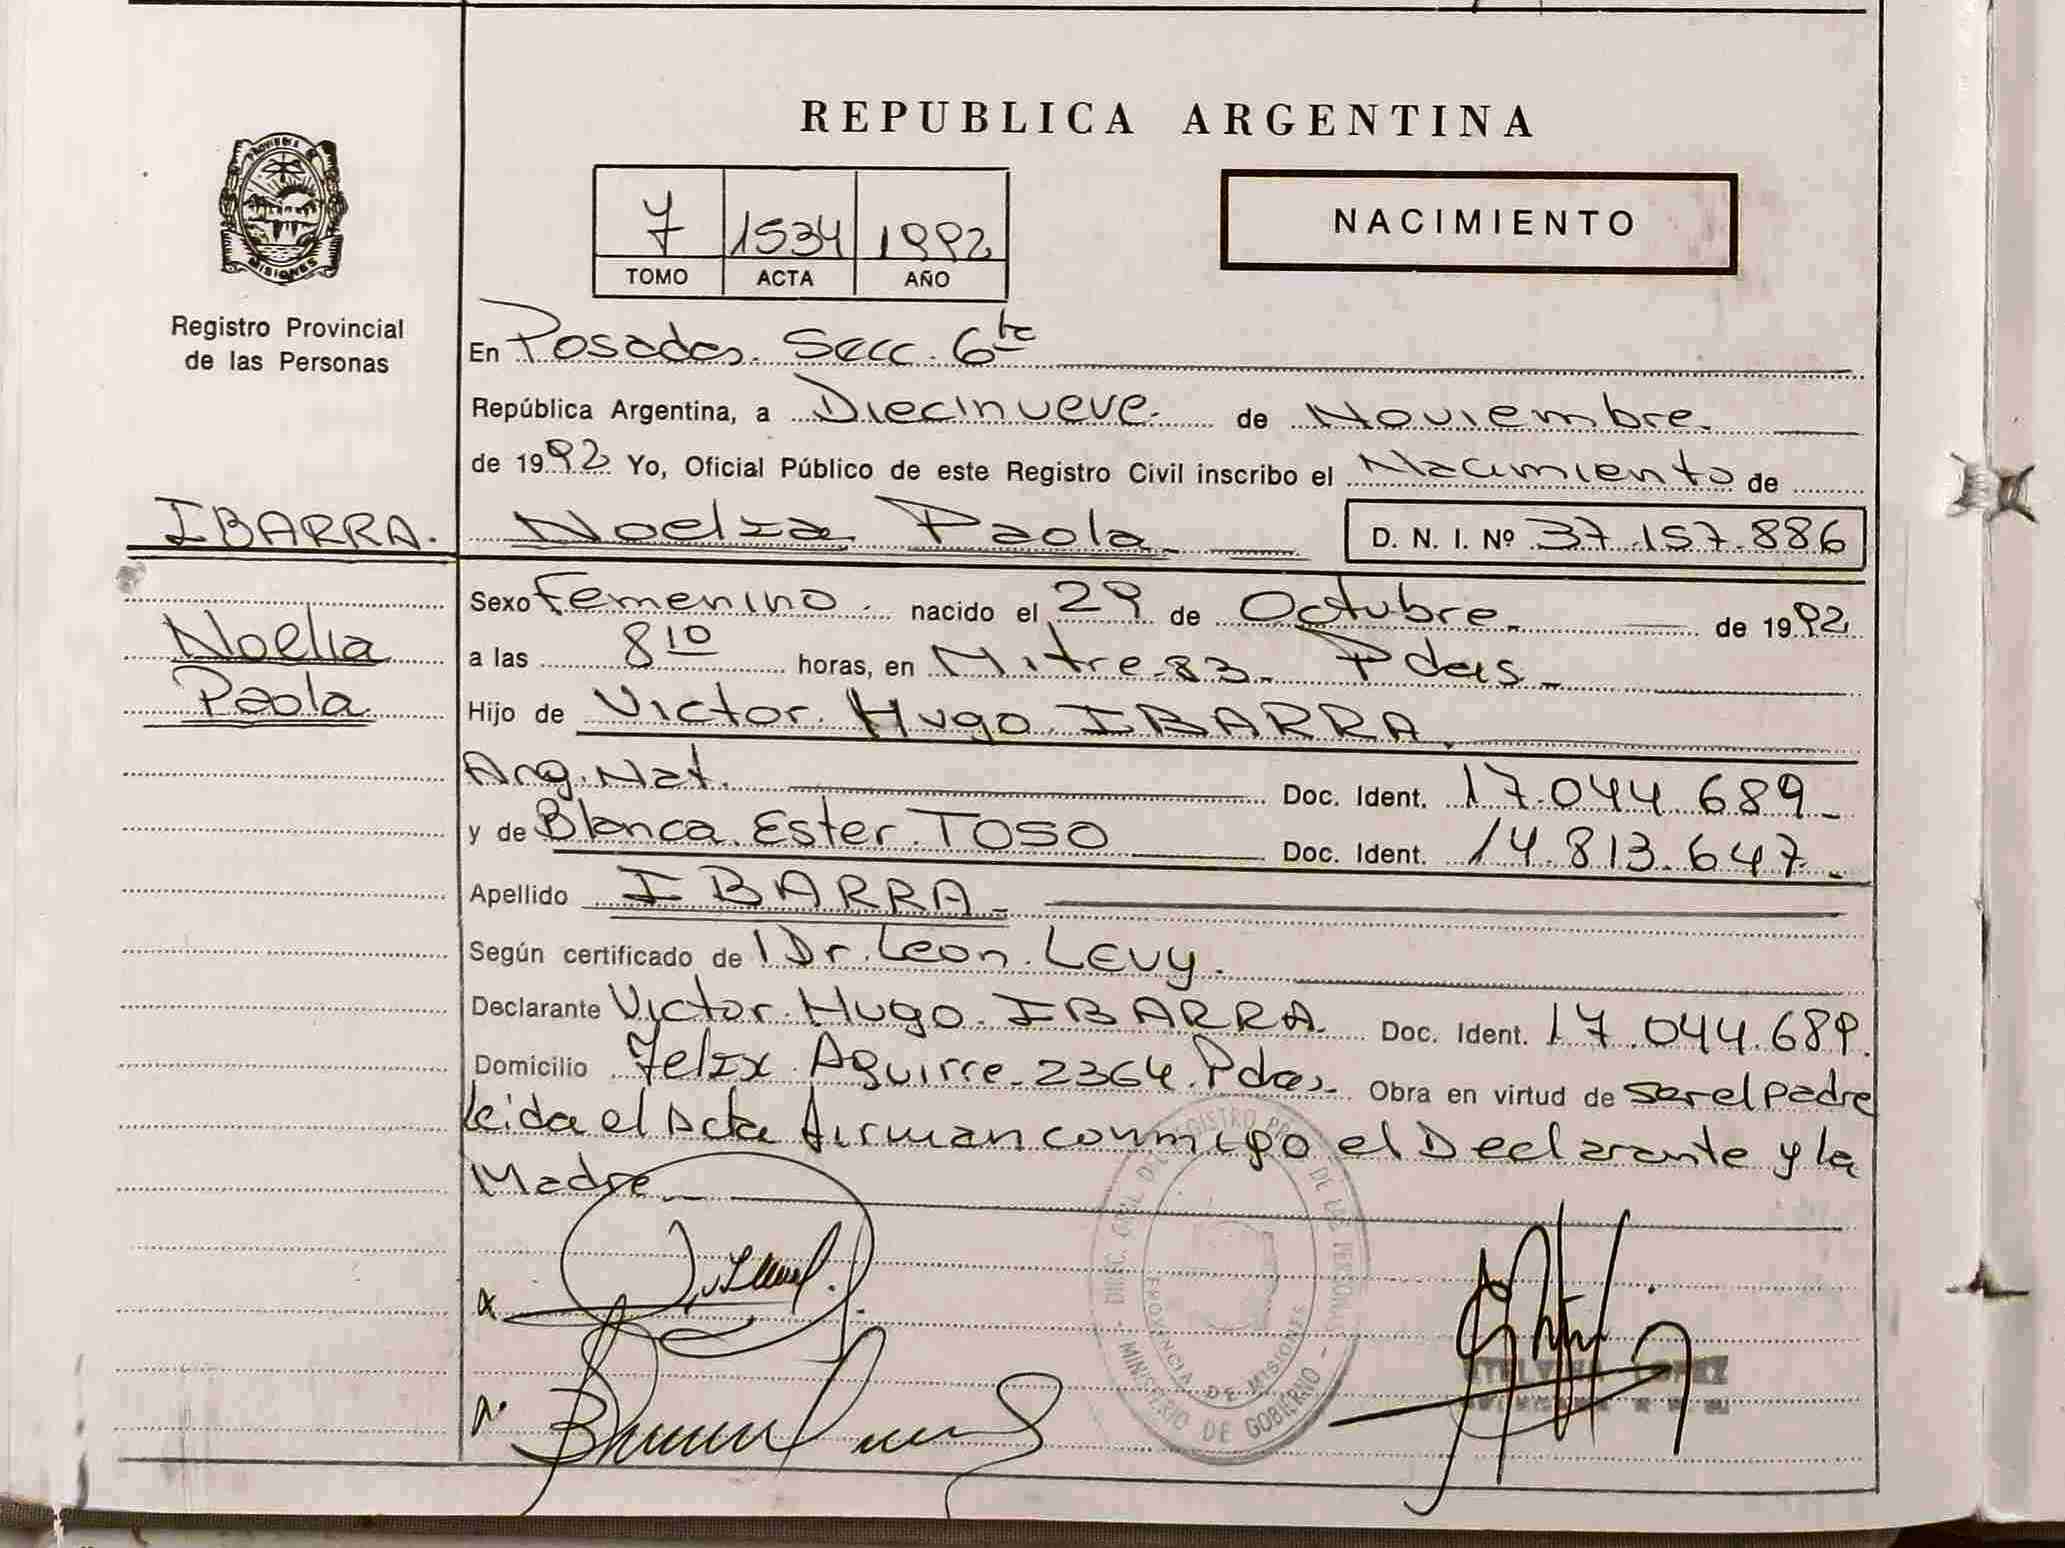 REPUBLICA ARGENTINA
PROVINCIA DE
MISIONES
Registro Provincial
de las Personas
7 1534 1992
TOMO ACTA AÑO
NACIMIENTO
En Posadas. Secc. 6ta
República Argentina, a Diecinueve. de Noviembre.
de 1992 Yo, Oficial Público de este Registro Civil inscribo el Nacimiento de
IBARRA.
Noelia Paola D. N. I. Nº 37.157.886
Noelia
Paola
Sexo Femenino. nacido el 29 de Octubre. de 1992
a las 8 10 horas, en Mitre 83. Pdas.
Hijo de Victor Hugo IBARRA.
Arg. Nat. Doc. Ident. 17.044.689
y de Blanca Ester TOSO Doc. Ident. 14.813.647
Apellido IBARRA
Según certificado de l Dr. Leon Levy.
Declarante Victor Hugo IBARRA. Doc. Ident. 17.044.689.
Domicilio Felix Aguirre 2364. Pdas. Obra en virtud de ser el padre
leida el Acta firman conmigo el Declarante y la
Madre
DIREC. CIVIL DEL REGISTRO DE LAS PERSONAS
PROVINCIA DE MISIONES
MINISTERIO DE GOBIERNO